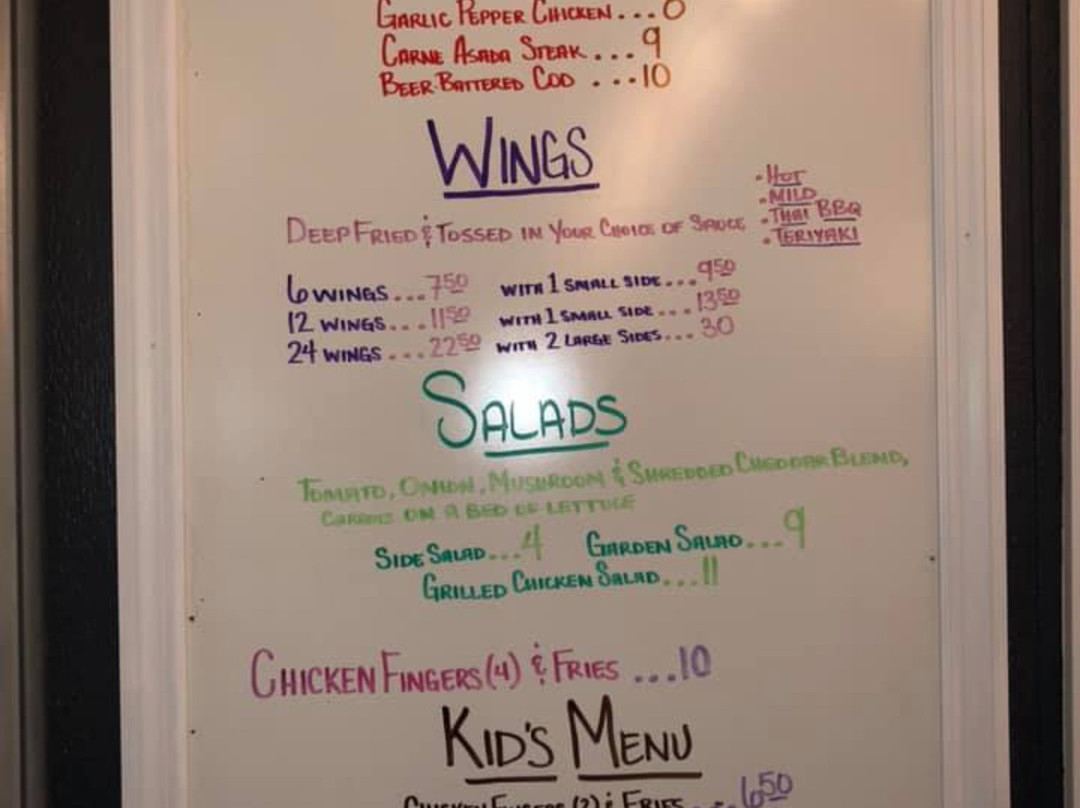 GARLIC PEPPER CHICKEN...
CARNE ASADA STEAK...9
BEER-BATTERED COD ...10
WINGS
DEEP FRIED & TOSSED IN YOUR CHOICE OF SAUCE
• HOT
• MILD
• THAI BBQ
• TERIYAKI
6 WINGS...7.50 WITH 1 SMALL SIDE...9.50
12 WINGS...11.50 WITH 1 SMALL SIDE...13.50
24 WINGS...22.50 WITH 2 LARGE SIDES...30
SALADS
TOMATO, ONION, MUSHROOM & SHREDDED CHEDDAR BLEND,
ON A BED OF LETTUCE
SIDE SALAD...4 GARDEN SALAD...9
GRILLED CHICKEN SALAD...11
CHICKEN FINGERS (4) & FRIES ...10
KID'S MENU
CHICKEN FINGERS (2) & FRIES ...6.50